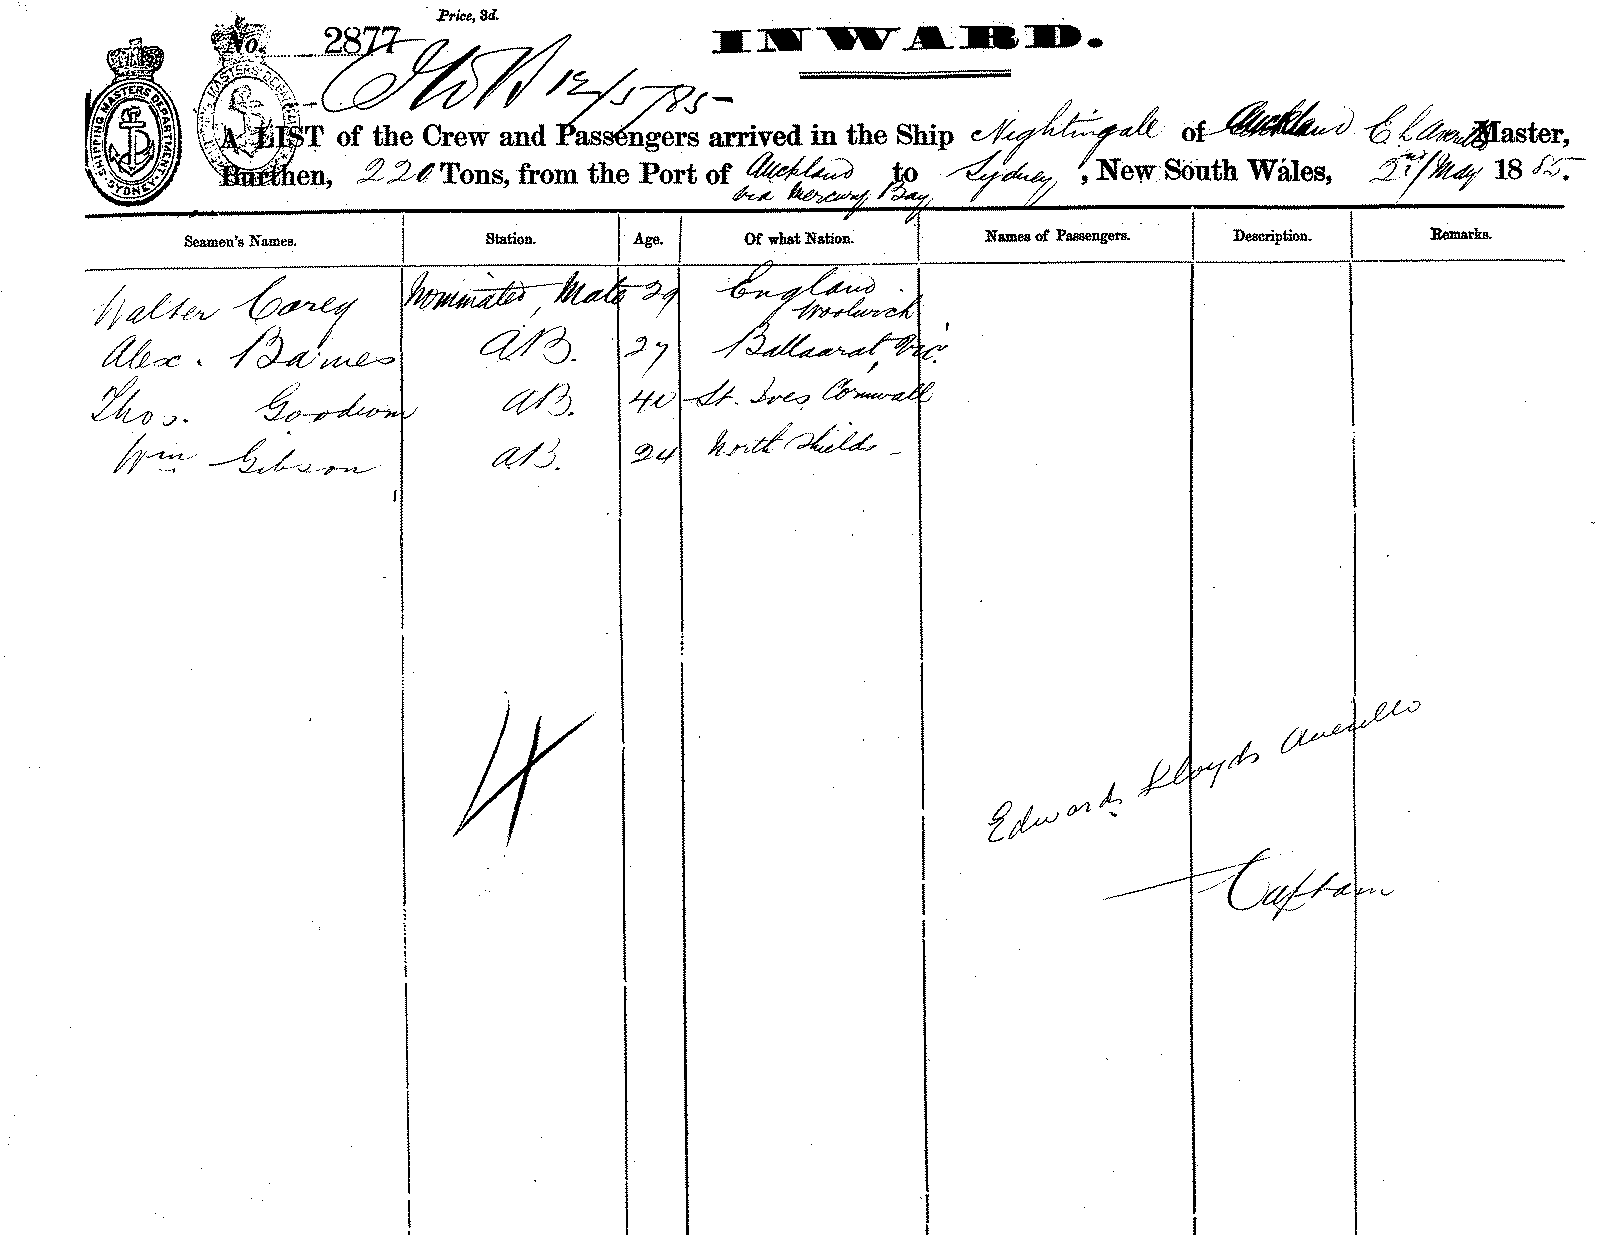 Price, 3d.
No. 2877
INWARD.
12/5/85
SHIPPING MASTERS DEPARTMENT SYDNEY
A LIST of the Crew and Passengers arrived in the Ship Nightingale of Auckland E L Master,
Burthen, 220 Tons, from the Port of Auckland to Sydney, New South Wales, 2nd/May 1885.
via Mercury Bay
Seamen's Names. Station. Age. Of what Nation. Names of Passengers. Description. Remarks.
Walter Carey Nominated, Mate 29 England.
Woolwich
Alex. Barnes AB. 27 Ballaarat, Vic.
Thos. AB. 40 St. Ives Cornwall
Wm Gibson AB. 24 North Shields
4
Edwards Lloyds
Captain